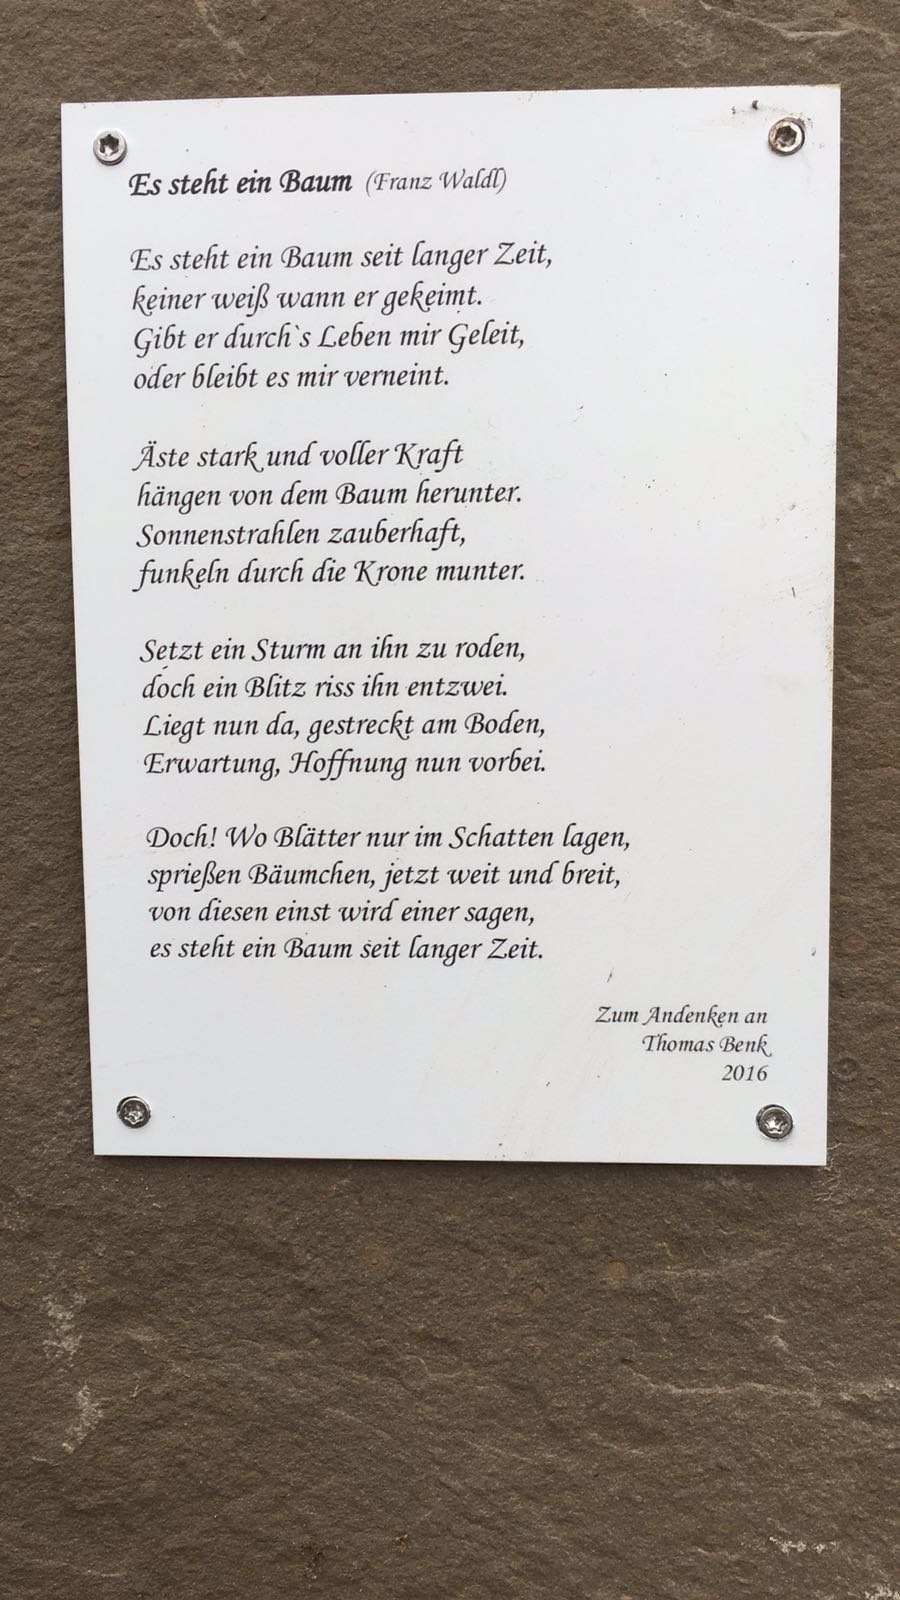 Es steht ein Baum (Franz Waldl)
Es steht ein Baum seit langer Zeit,
keiner weiß wann er gekeimt.
Gibt er durch`s Leben mir Geleit,
oder bleibt es mir verneint.
Äste stark und voller Kraft
hängen von dem Baum herunter.
Sonnenstrahlen zauberhaft,
funkeln durch die Krone munter.
Setzt ein Sturm an ihn zu roden,
doch ein Blitz riss ihn entzwei.
Liegt nun da, gestreckt am Boden,
Erwartung, Hoffnung nun vorbei.
Doch! Wo Blätter nur im Schatten lagen,
sprießen Bäumchen, jetzt weit und breit,
von diesen einst wird einer sagen,
es steht ein Baum seit langer Zeit.
Zum Andenken an
Thomas Benk
2016